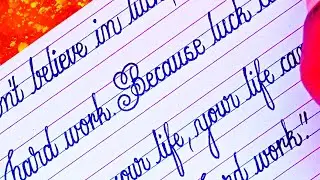 believe in luck,
hard work. Because luck
your life, your life can
hard work."